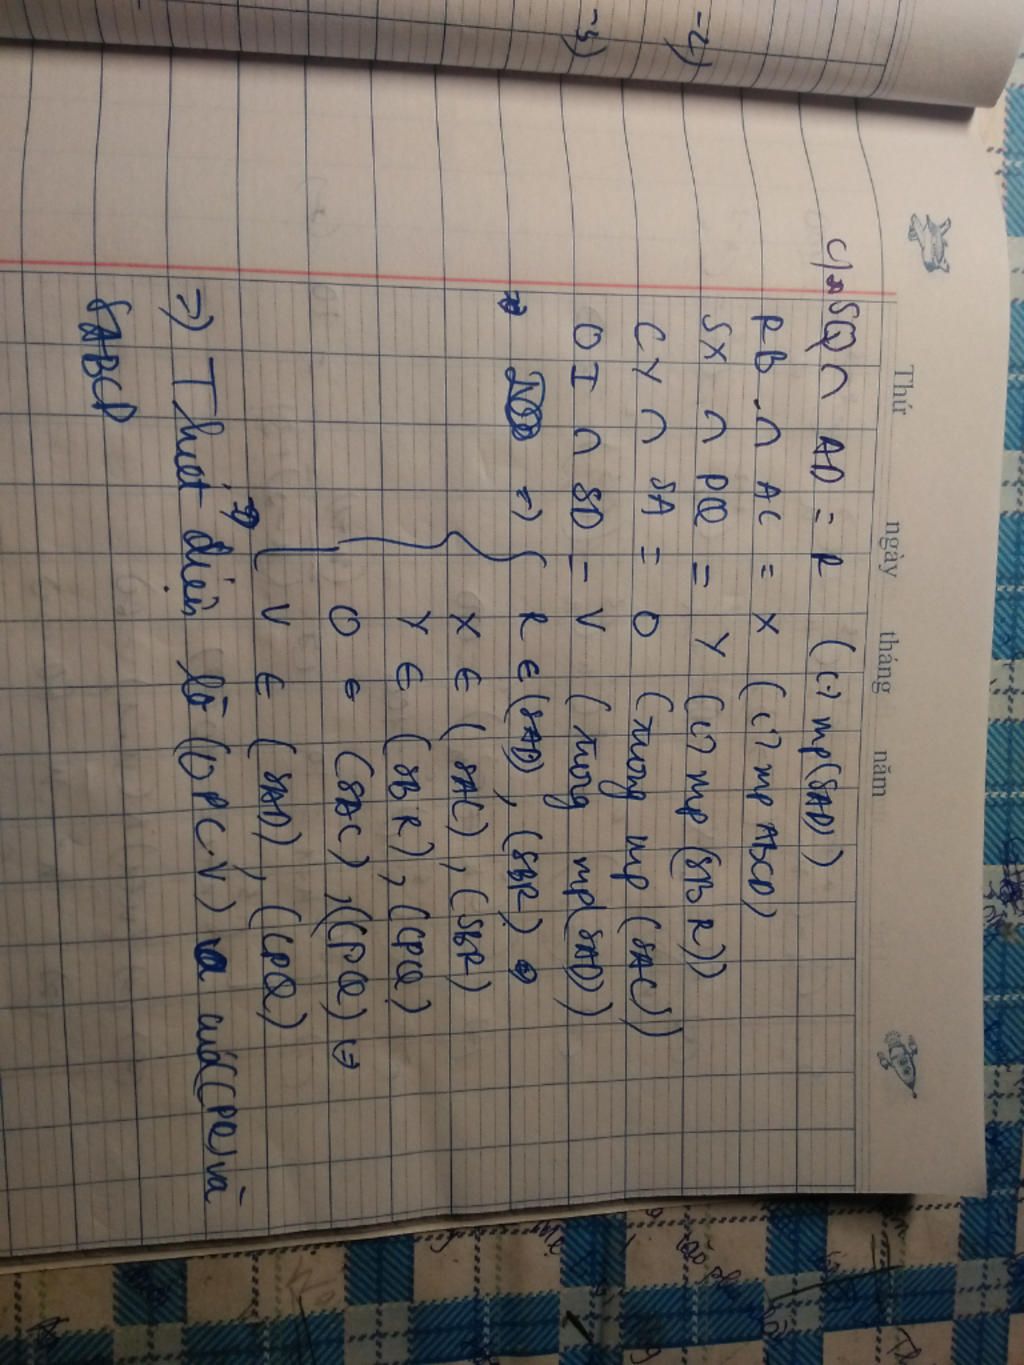 Thứ ngày tháng năm
c) SQ ∩ AD = R (c? mp(SAD)
RB ∩ AC = X (c? mp ABCD)
SX ∩ PQ = Y (c? mp (SBR))
CY ∩ SA = O (trong mp (SAC))
OI ∩ SD = V (trong mp(SAD))
=> { R ∈ (SAD), (SBR)
X ∈ (SAC), (SBR)
Y ∈ (SBR), (CPQ)
O ∈ (SAC), (CPQ)
V ∈ (SAD), (CPQ)
=) Thiết diện là (OPCV) của (CPQ) và
SABCD
-2)
-3)